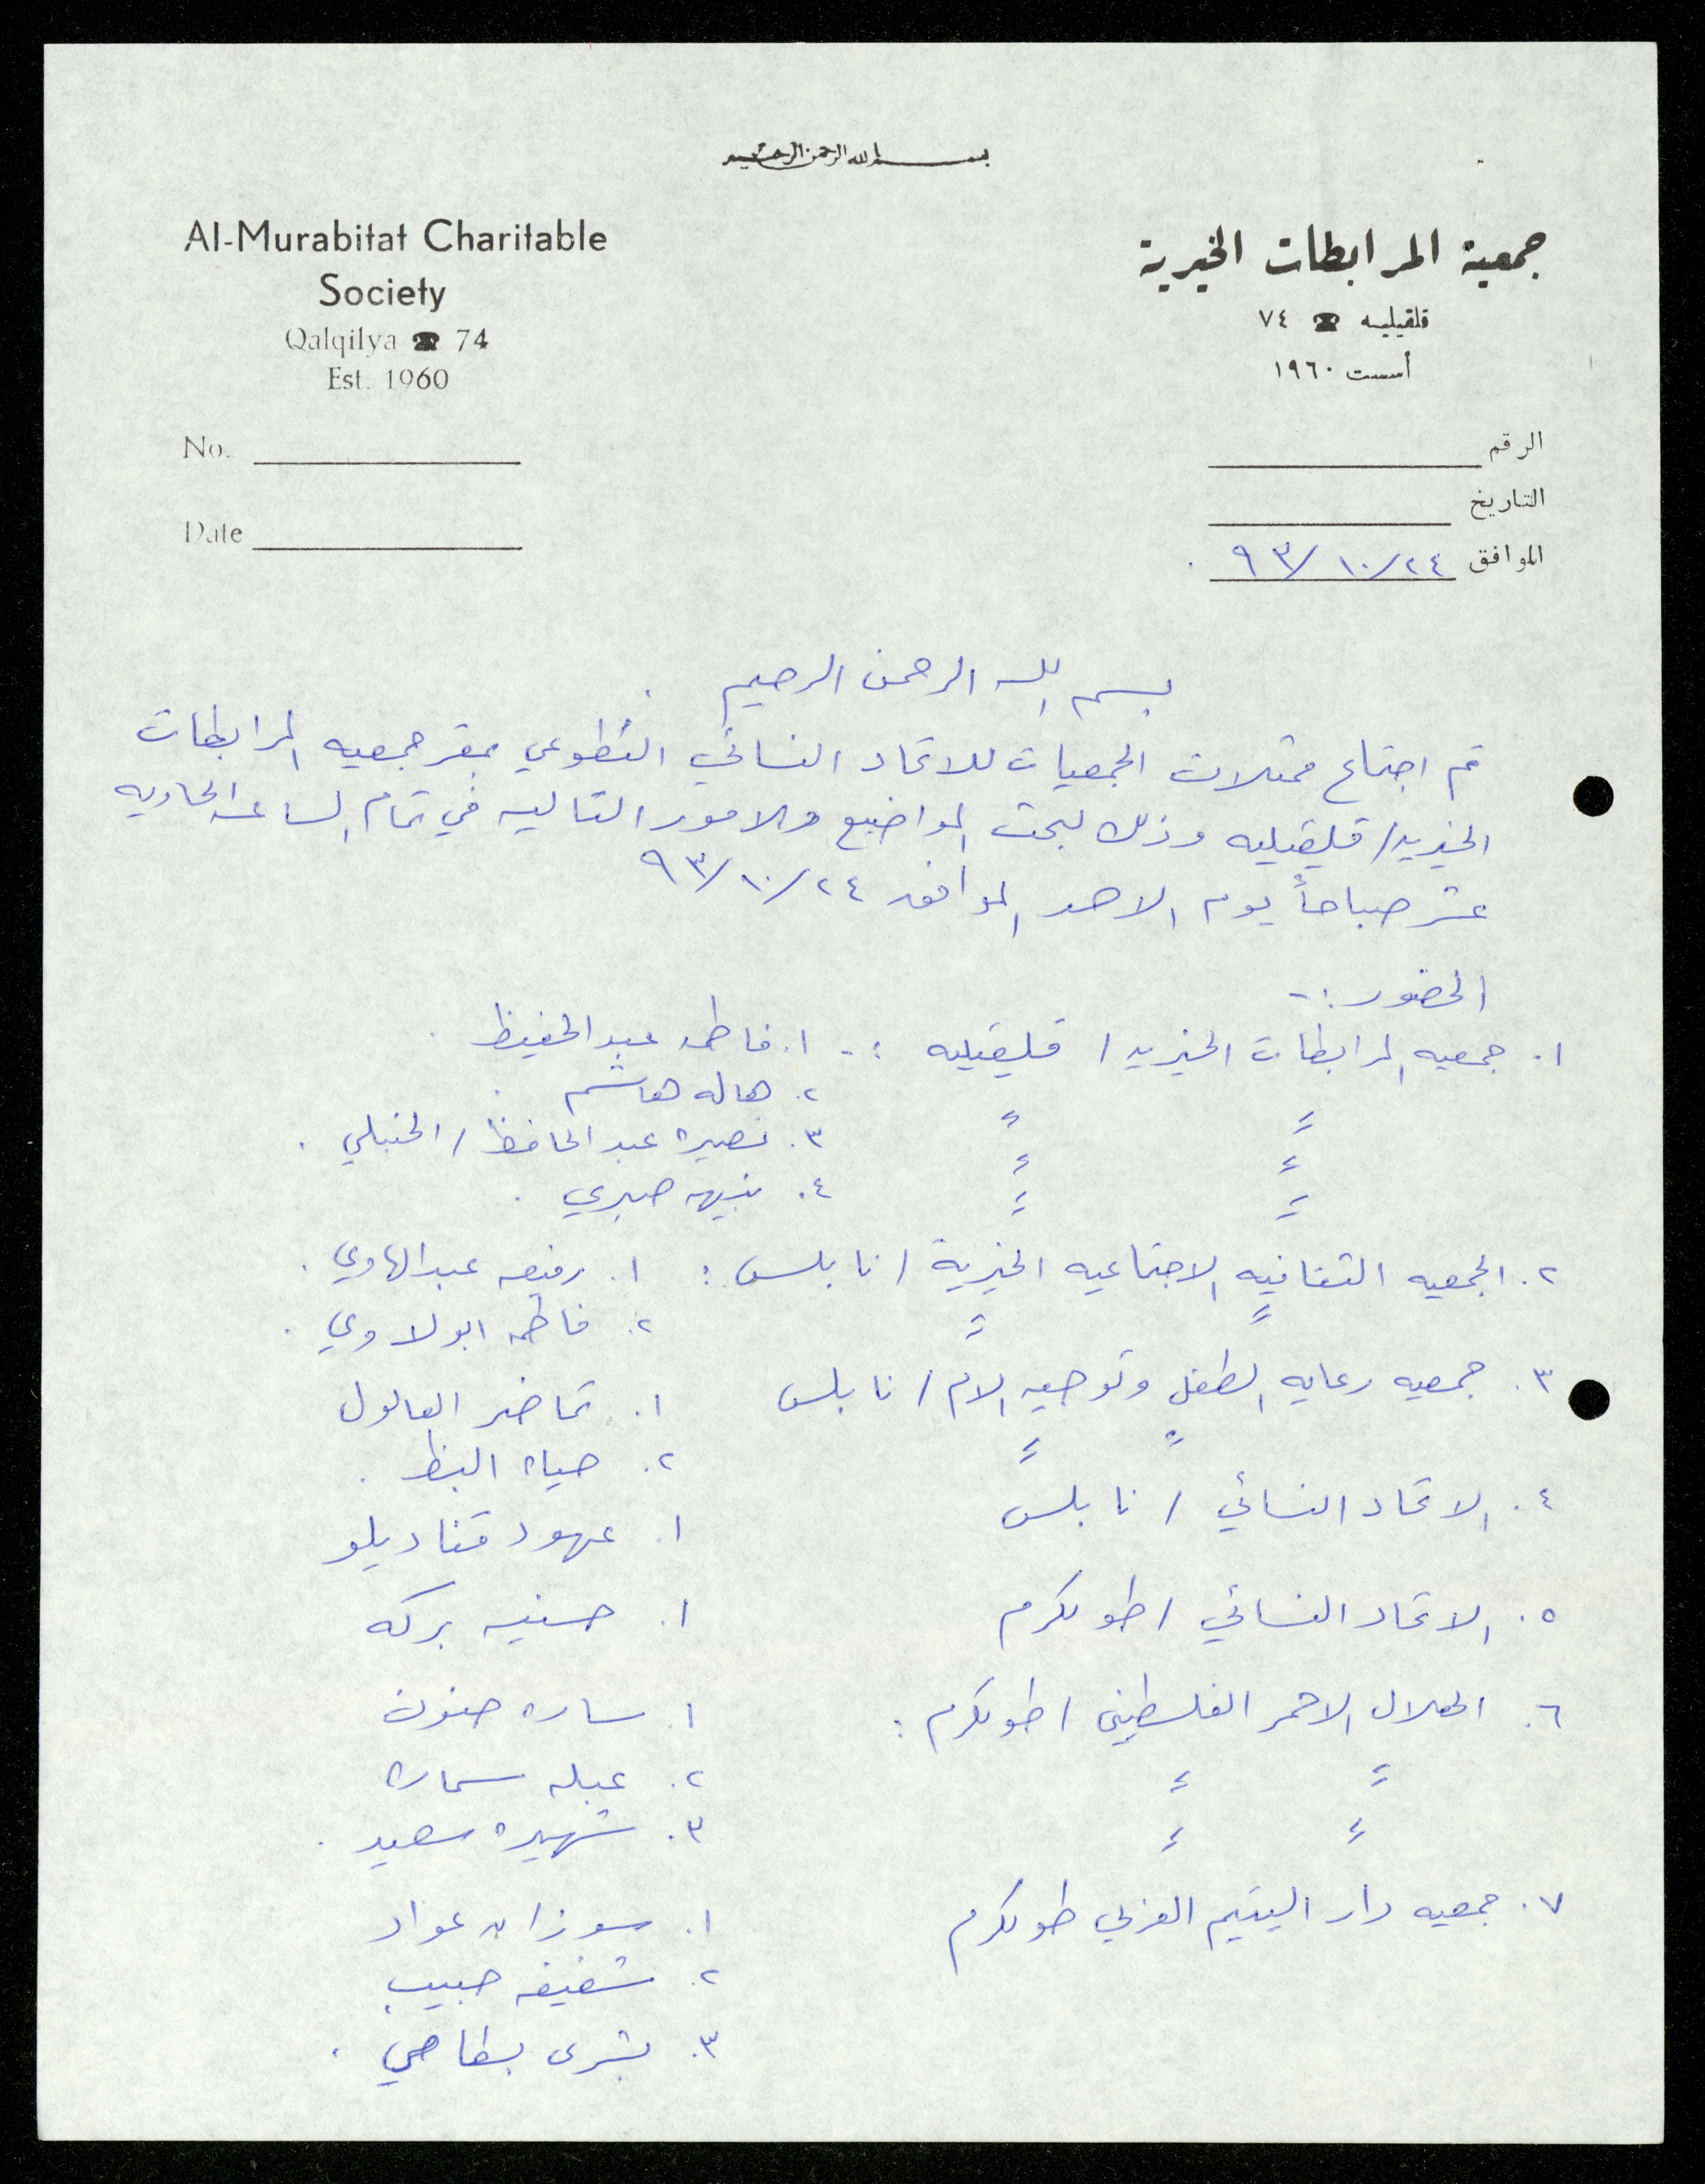 بسم الله الرحمن الرحيم
Al-Murabitat Charitable
Society
Qalqilya ☎ 74
Est. 1960
No.
Date
جمعية المرابطات الخيرية
قلقيليه ☎ ٧٤
أسست ١٩٦٠
الرقم
التاريخ
الموافق ٢٤/١٠/٩٣
بسم الله الرحمن الرحيم .
تم اجتماع ممثلات الجمعيات للاتحاد النسائي التطوعي بمقر جمعيه المرابطات
الخيريه/ قلقيليه وذلك لبحث المواضيع والامور التاليه في تمام الساعه الحاديه
عشر صباحاً يوم الاحد الموافق ٢٤/١٠/٩٣
الحضور :-
١. جمعيه المرابطات الخيريه / قلقيليه :- ١. فاطمه عبد الحفيظ .
٢. هاله هاشم .
٣. نصيره عبد الحافظ / الحنبلي .
٤. نبيهه صبري .
٢. الجمعيه الثقافيه الاجتماعيه الخيرية / نابلس : ١. رفيعه عبد الهادي .
٢. فاطمه ابولاوي .
٣. جمعيه رعايه الطفل وتوجيه الام / نابلس ١. تماضر العالول
٢. حياه البظ .
٤. الاتحاد النسائي / نابلس
١. عهود قناديلو
٥. الاتحاد النسائي / طولكرم ١. حسنيه بركه
٦. الهلال الاحمر الفلسطيني / طولكرم : ١. ساره حنون
٢. عبله سماره
٣. شهيره سعيد .
٧. جمعيه دار اليتيم العربي طولكرم ١. سوزان عواد
٢. شفيقه حبيب
٣. بشرى بسطامي .